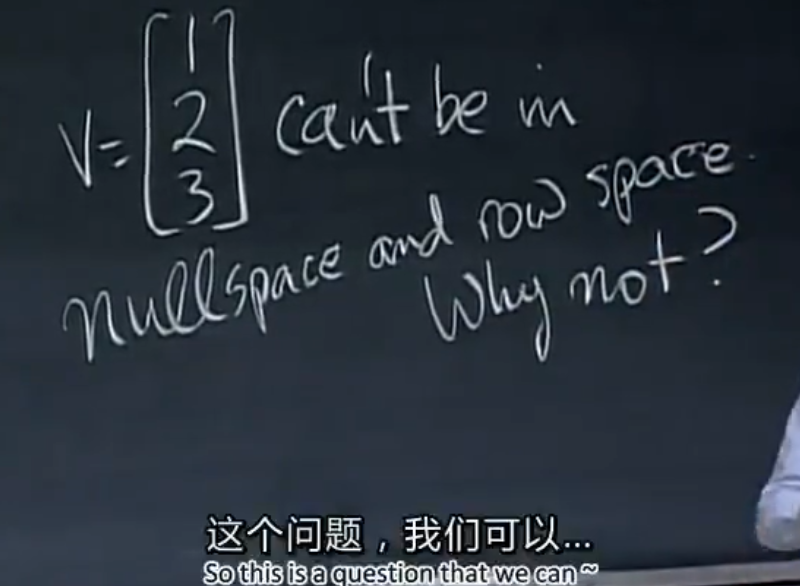 V = [1 2 3] can't be in
nullspace and row space.
Why not?
这个问题，我们可以...
So this is a question that we can ~